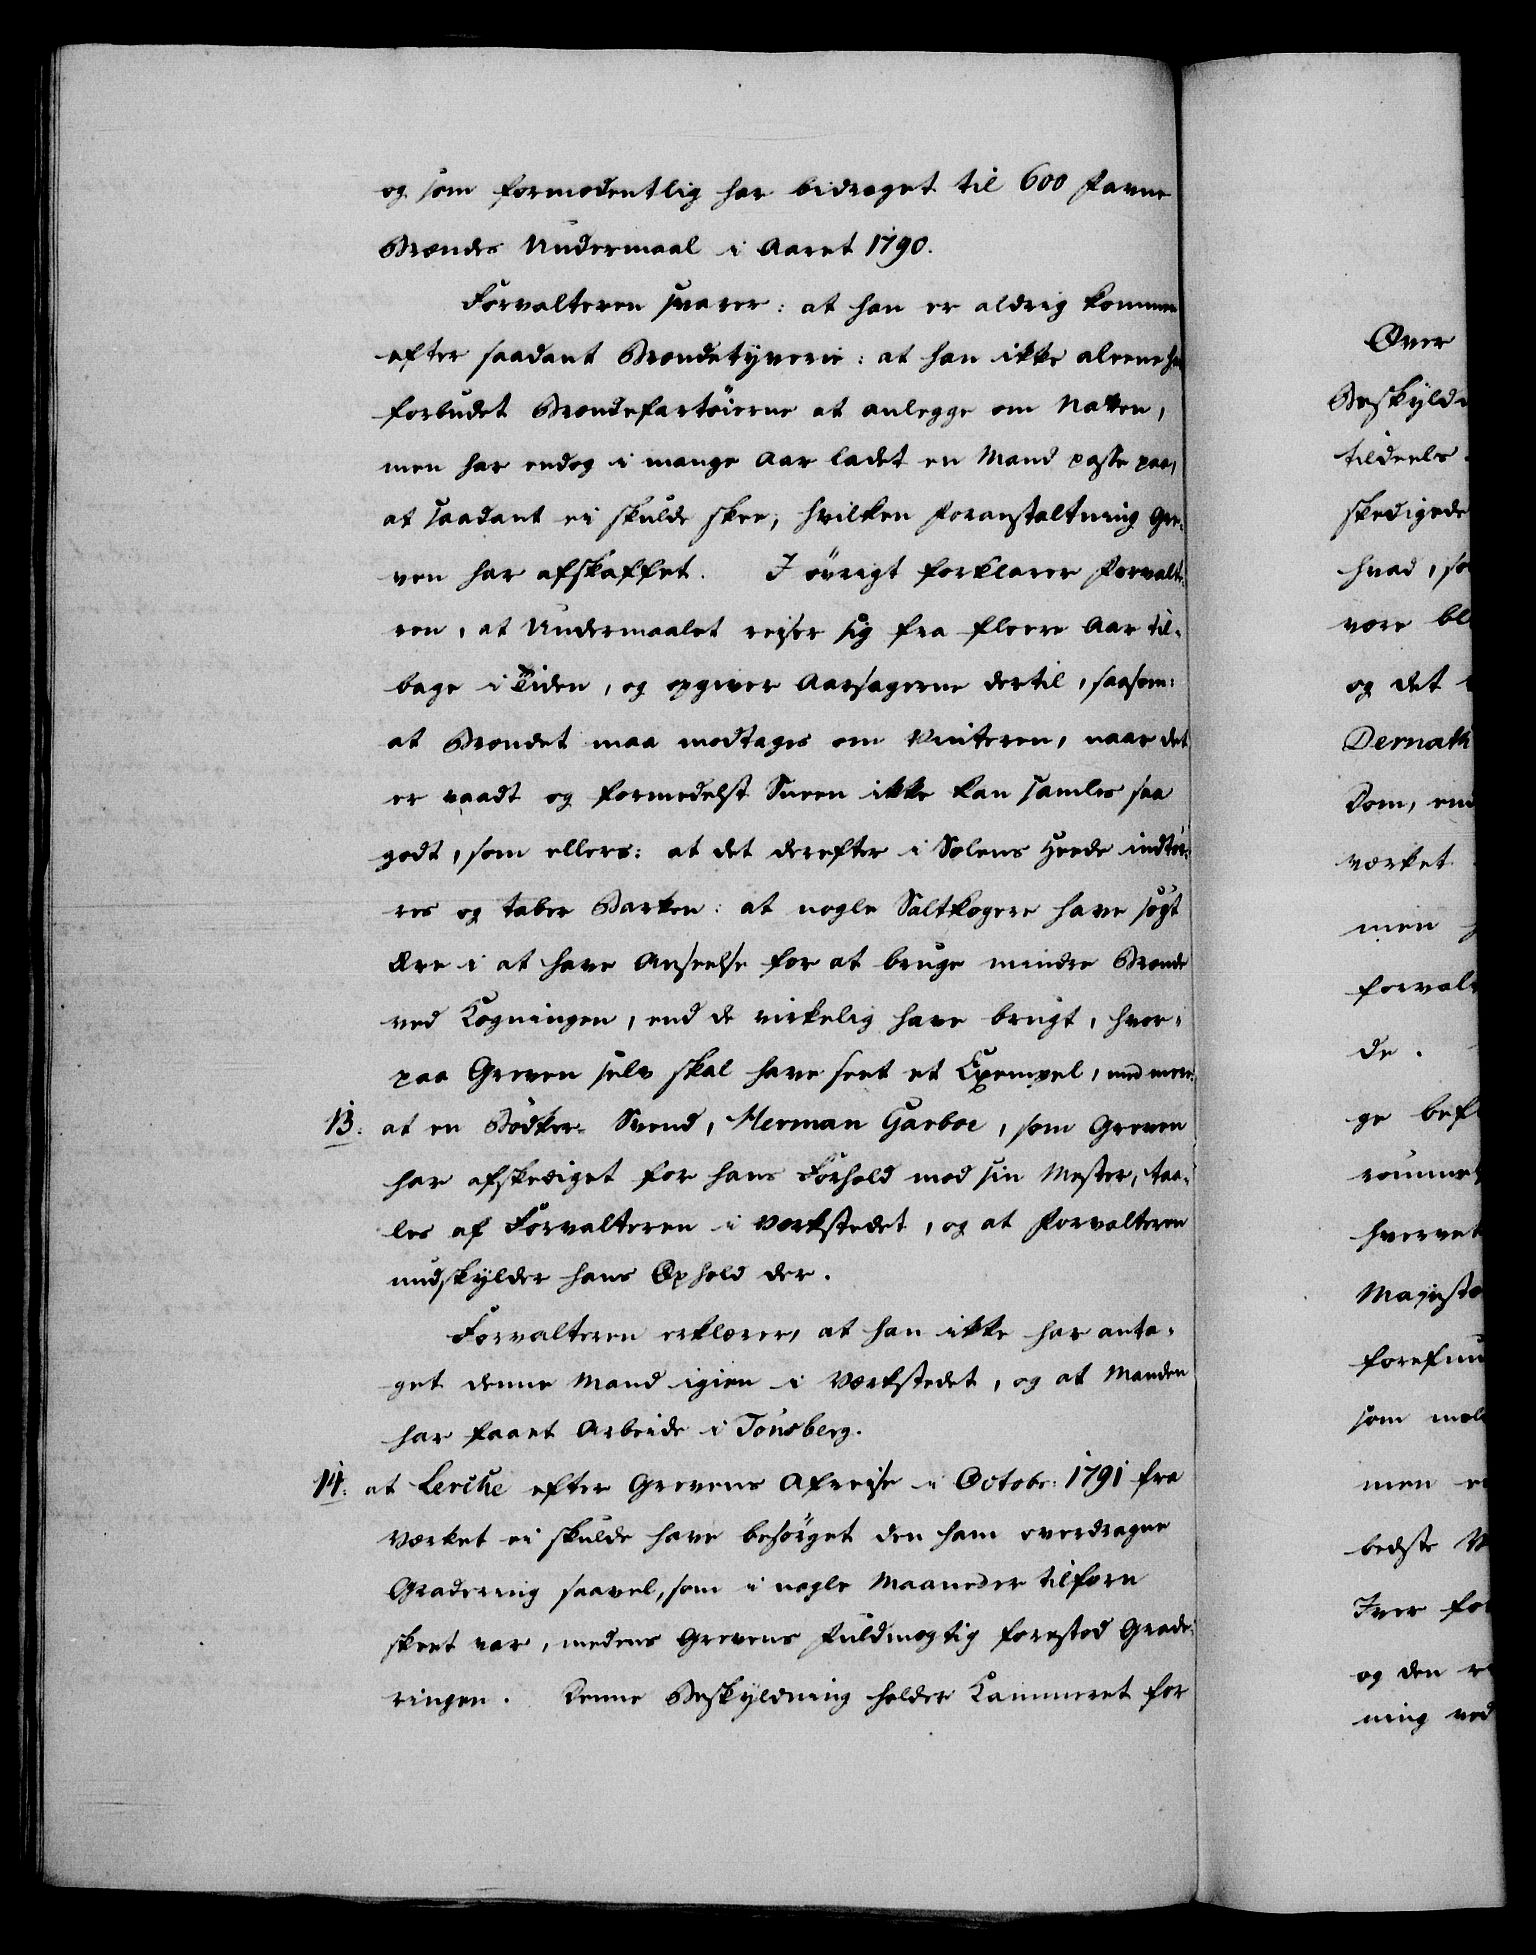 og som formodentlig har bidraget til 600 Favne
Brændes Undermaal i Aaret 1790.
Forvalteren svarer: at han er aldrig kommen
efter saadant Brændetyverie: at han ikke aleene har
forbudet Brændefartöierne at anlegge om Natten,
men har endog i mange Aar ladet en Mand passe paa,
at saadant ei skulde skee, hvilken Foranstaltning Gre-
ven har afskaffet. I övrigt forklarer Forvalte-
ren, at Undermaalet reiser sig fra fleere Aar til-
bage i Tiden, og opgiver Aarsagerne dertil, saasom:
at Brændet maa modtages om Vinteren, naar det
er vaadt og formedelst Sneen ikke kan samles saa
godt, som ellers: at det derefter i Solens Heede indtör-
res og taber Barken: at nogle Saltkogere have sögt
Ære i at have Anseelse for at bruge mindre Brænde
ved Kogningen, end de virkelig have brugt, hvor-
paa Greven selv skal have seet et Exempel, med mere.
13. at en Bödker-Svend, Herman Garboe, som Greven
har afskediget for hans Forhold mod sin Mester, taa-
les af Forvalteren i Værkstedet, og at Forvalteren
undskylder hans Ophold der.
Forvalteren erklærer, at han ikke har anta-
get denne Mand igien i Værkstedet, og at Manden
har faaet Arbeide i Tönsberg.
14. at Lerche efter Grevens Afreise i Octobr: 1791 fra
Værket ei skulde have besörget den ham overdragne
Gradering saavel, som i nogle Maaneder tilforn
skeet var, medens Grevens Fuldmægtig forestod Grade-
ringen. Denne Beskyldning holder Kammeret for
Over
Beskyldn
tildeels
skedigede
hvad, so
være bl
og det
Dernath
Dom, end
værket
men
forvalt
de.
ge bef
rømmet
hvervet
Majestæ
forefun
som
men
bedste
Iver for
og den
ning ved